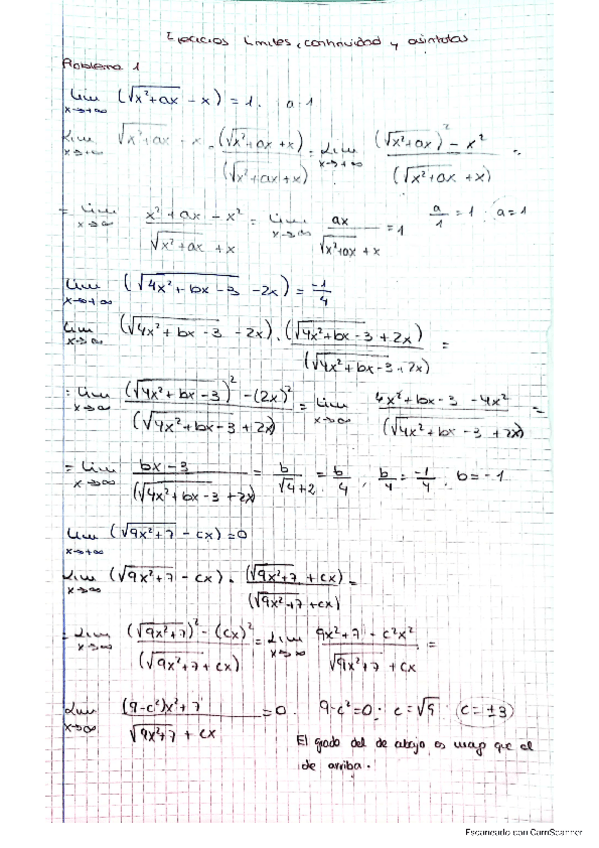 Ejercicios límites, continuidad y asíntotas
Problema 1
lim x→+∞ (√(x²+ax) - x) = 1. a=1
lim x→+∞ √(x²+ax) - x · (√(x²+ax) + x) / (√(x²+ax) + x) = lim x→+∞ ((√(x²+ax))² - x²) / (√(x²+ax) + x) =
= lim x→∞ (x²+ax - x²) / (√(x²+ax) + x) = lim x→∞ ax / (√(x²+ax) + x) = 1 a/1 = 1 ; a=1
lim x→+∞ (√(4x²+bx-3) - 2x) = -1/4
lim x→∞ (√(4x²+bx-3) - 2x) · (√(4x²+bx-3) + 2x) / (√(4x²+bx-3) + 2x) =
= lim x→∞ ((√(4x²+bx-3))² - (2x)²) / (√(4x²+bx-3) + 2x) = lim x→∞ (4x²+bx-3 - 4x²) / (√(4x²+bx-3) + 2x) =
= lim x→∞ (bx-3) / (√(4x²+bx-3) + 2x) = b / (√4+2) = b/4 , b/4 = -1/4 , b=-1
lim x→+∞ (√(9x²+7) - cx) = 0
lim x→∞ (√(9x²+7) - cx) · (√(9x²+7) + cx) / (√(9x²+7) + cx) =
= lim x→∞ ((√(9x²+7))² - (cx)²) / (√(9x²+7) + cx) = lim x→∞ (9x²+7 - c²x²) / (√(9x²+7) + cx) =
lim x→∞ ((9-c²)x²+7) / (√(9x²+7) + cx) = 0. 9-c²=0 ; c=√9 (c=±3)
El grado del de abajo es mayor que el
de arriba.
Escaneado con CamScanner